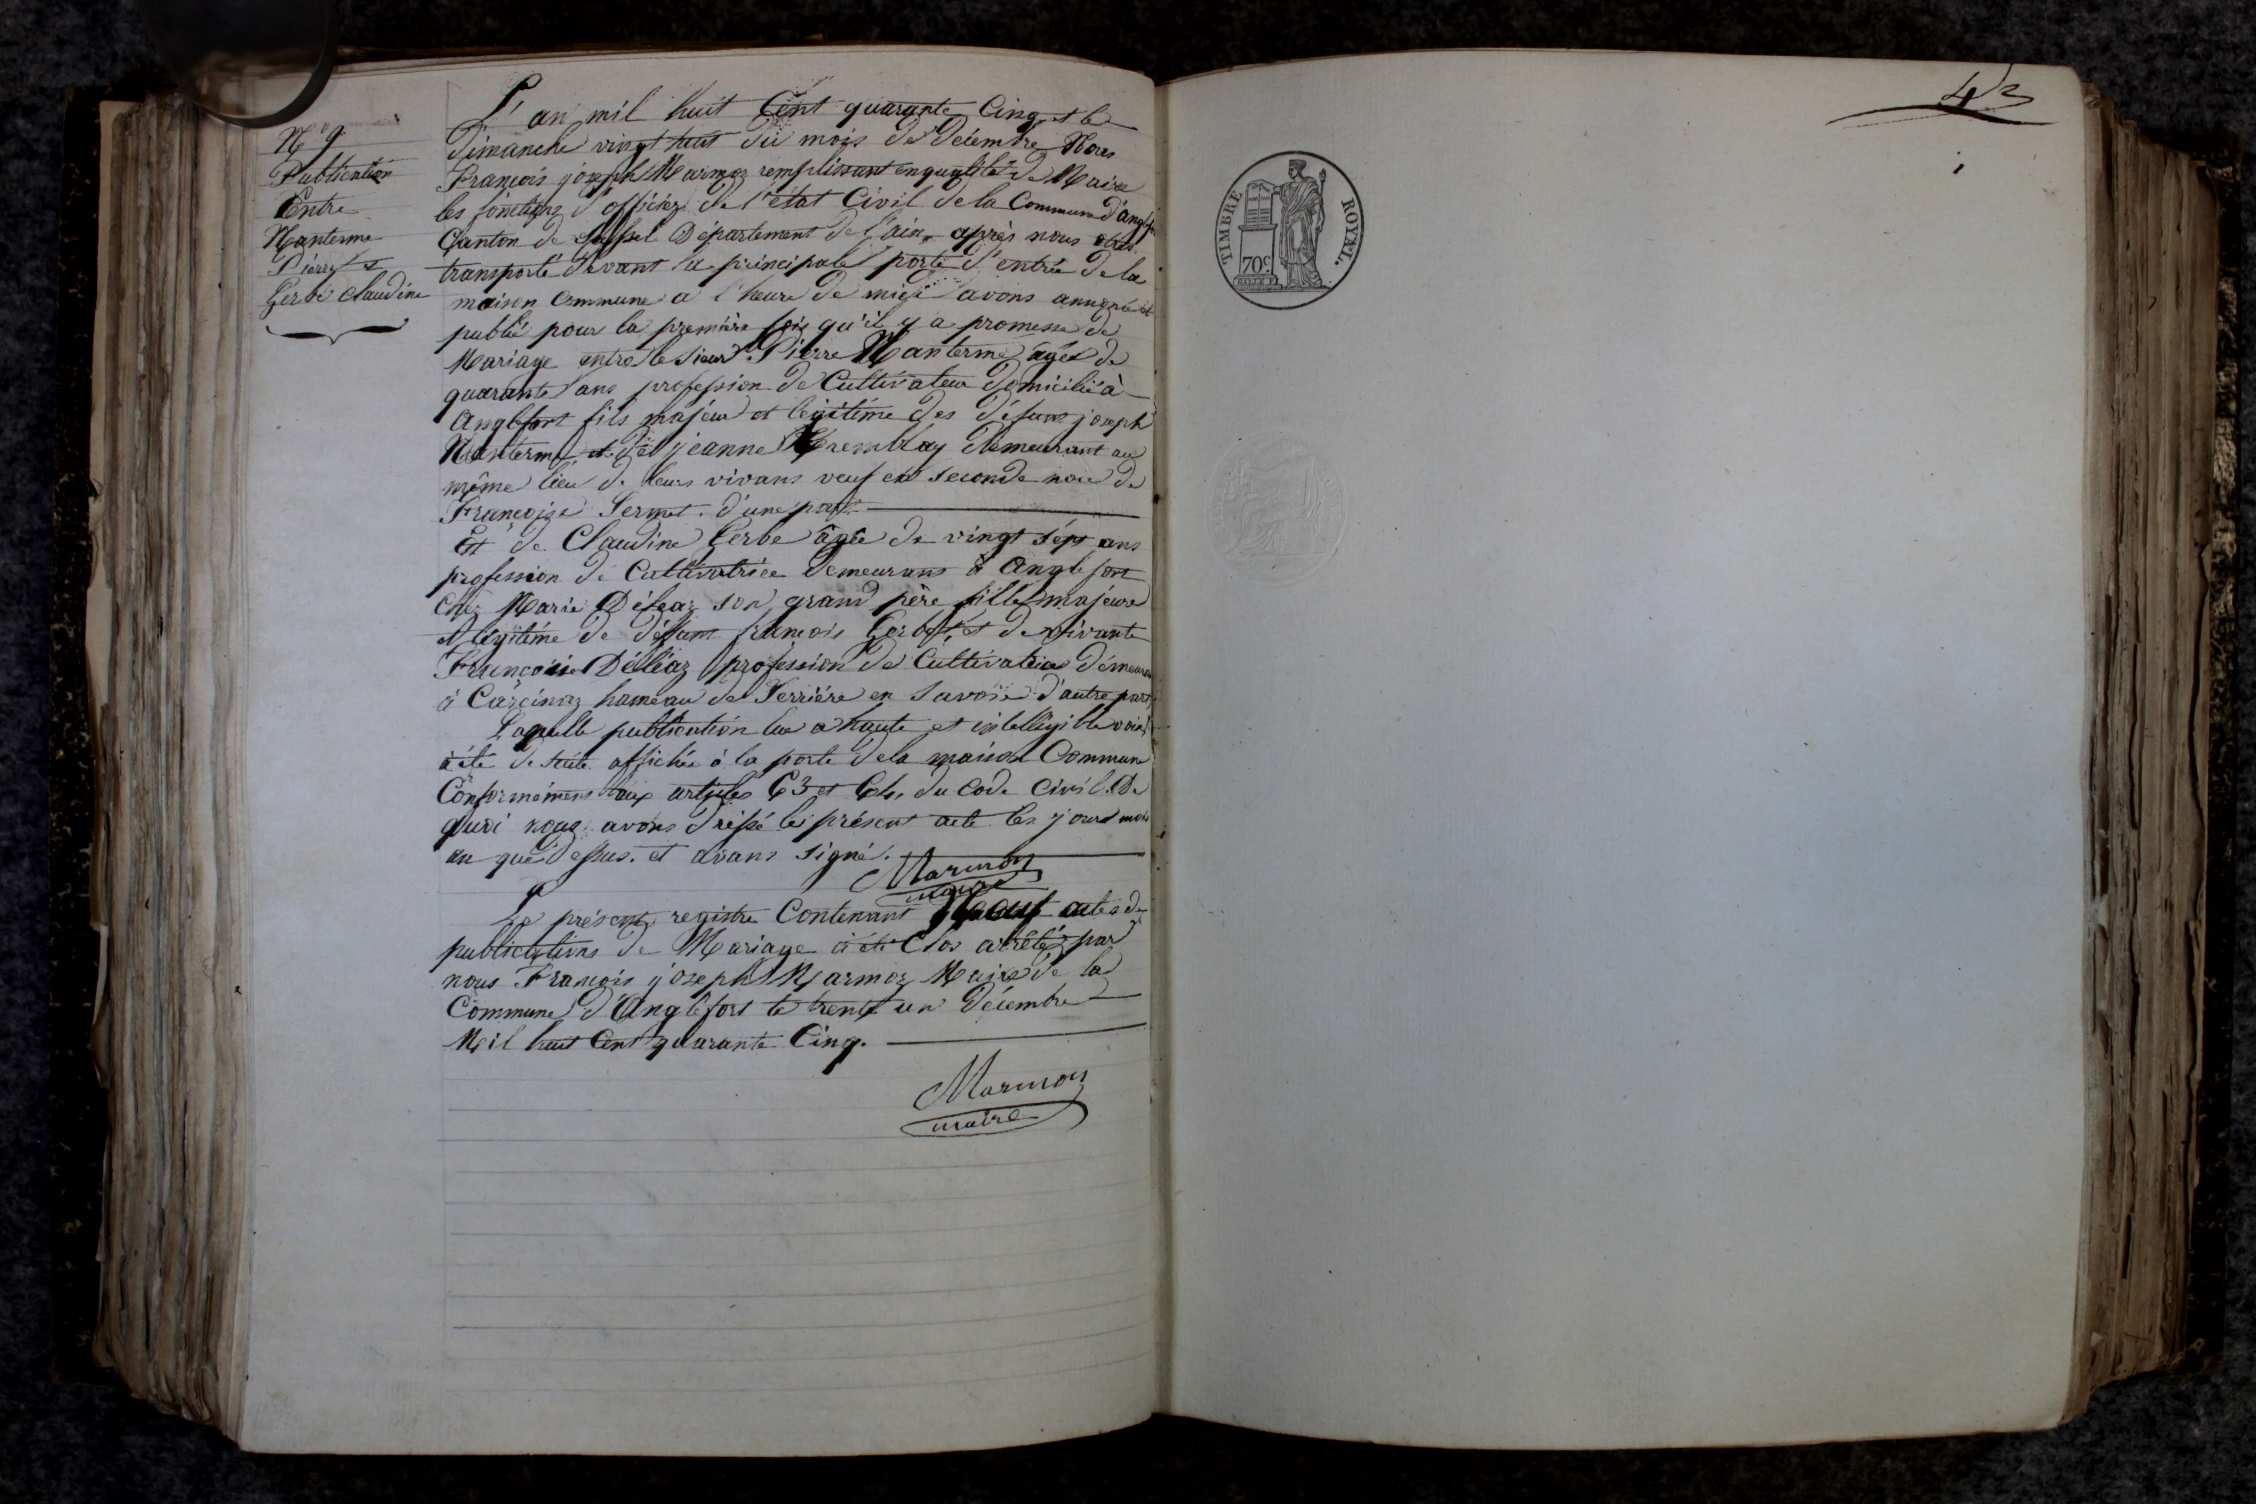 N° 9
Publication
Entre
Nanterme
Pierre et
Gerbe Claudine
L'an mil huit Cent quarante Cinq et le
Dimanche vingt huit du mois de Décembre Nous
François joseph Marmoz remplissant en qualité de Maire
les fonctions d'officier de l'état Civil de la Commune d'anglefort
Canton de Seyssel Département de l'ain, après nous être
transporté devant la principale porte d'entrée de la
maison Commune a l'heure de midi avons annoncé et
publié pour la première fois qu'il y a promesse de
Mariage entre le sieur Pierre Nanterme âgé de
quarante ans profession de Cultivateur domicilié à
Anglefort fils majeur et légitime des défunts joseph
Nanterme et de jeanne Tremblay demeurant au
même lieu de leurs vivans veuf en seconde noce de
Françoise Sermet. d'une part.
Et de Claudine Gerbe âgée de vingt sépt ans
profession de Cultivatrice demeurans à Anglefort
Chez Marie Déléaz son grand père fille majeure
et légitime de défunt françois Gerbe, et de vivante
Françoise Délléaz profession de Cultivatrice démeurant
à Carcinaz hameau de Serriére en Savoie d'autre part
Laquelle publication lue a haute et intelligible voix
à été de suite affichée à la porte de la maison Commune
Conformément aux articles 63 et 64, du Code Civil. De
quoi nous avons dressé le présent acte les jour mois
an que dessus. et avans signé.
Marmoz
maire
Le présent registre Contenant Neuf actes de
publications de Mariage à été Clos arrêté par
nous François joseph Marmoz Maire de la
Commune d'Anglefort le trente un Décembre
Mil huit Cent quarante Cinq.
Marmoz
maire
43
TIMBRE ROYAL.
70c